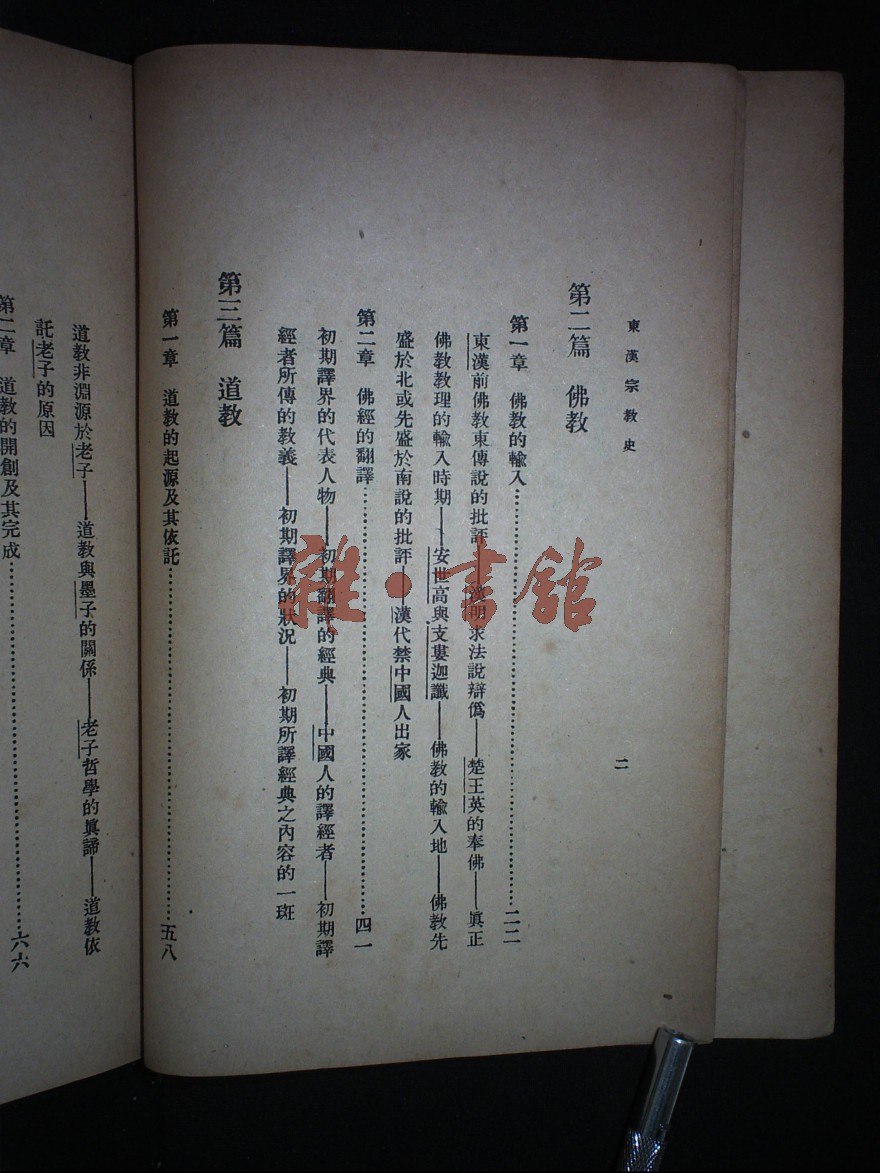 東漢宗教史
二
第二篇 佛教
第一章 佛教的輸入……二二
東漢前佛教東傳說的批評——漢明求法說辯僞——楚王英的奉佛——眞正
佛教教理的輸入時期——安世高與支婁迦讖——佛教的輸入地——佛教先
盛於北或先盛於南說的批評——漢代禁中國人出家
第二章 佛經的翻譯……四一
初期譯界的代表人物——初期翻譯的經典——中國人的譯經者——初期譯
經者所傳的教義——初期譯界的狀況——初期所譯經典之內容的一斑
第三篇 道教
第一章 道教的起源及其依託……五八
道教非淵源於老子——道教與墨子的關係——老子哲學的眞諦——道教依
託老子的原因
第二章 道教的開創及其完成……六六
雜·書館